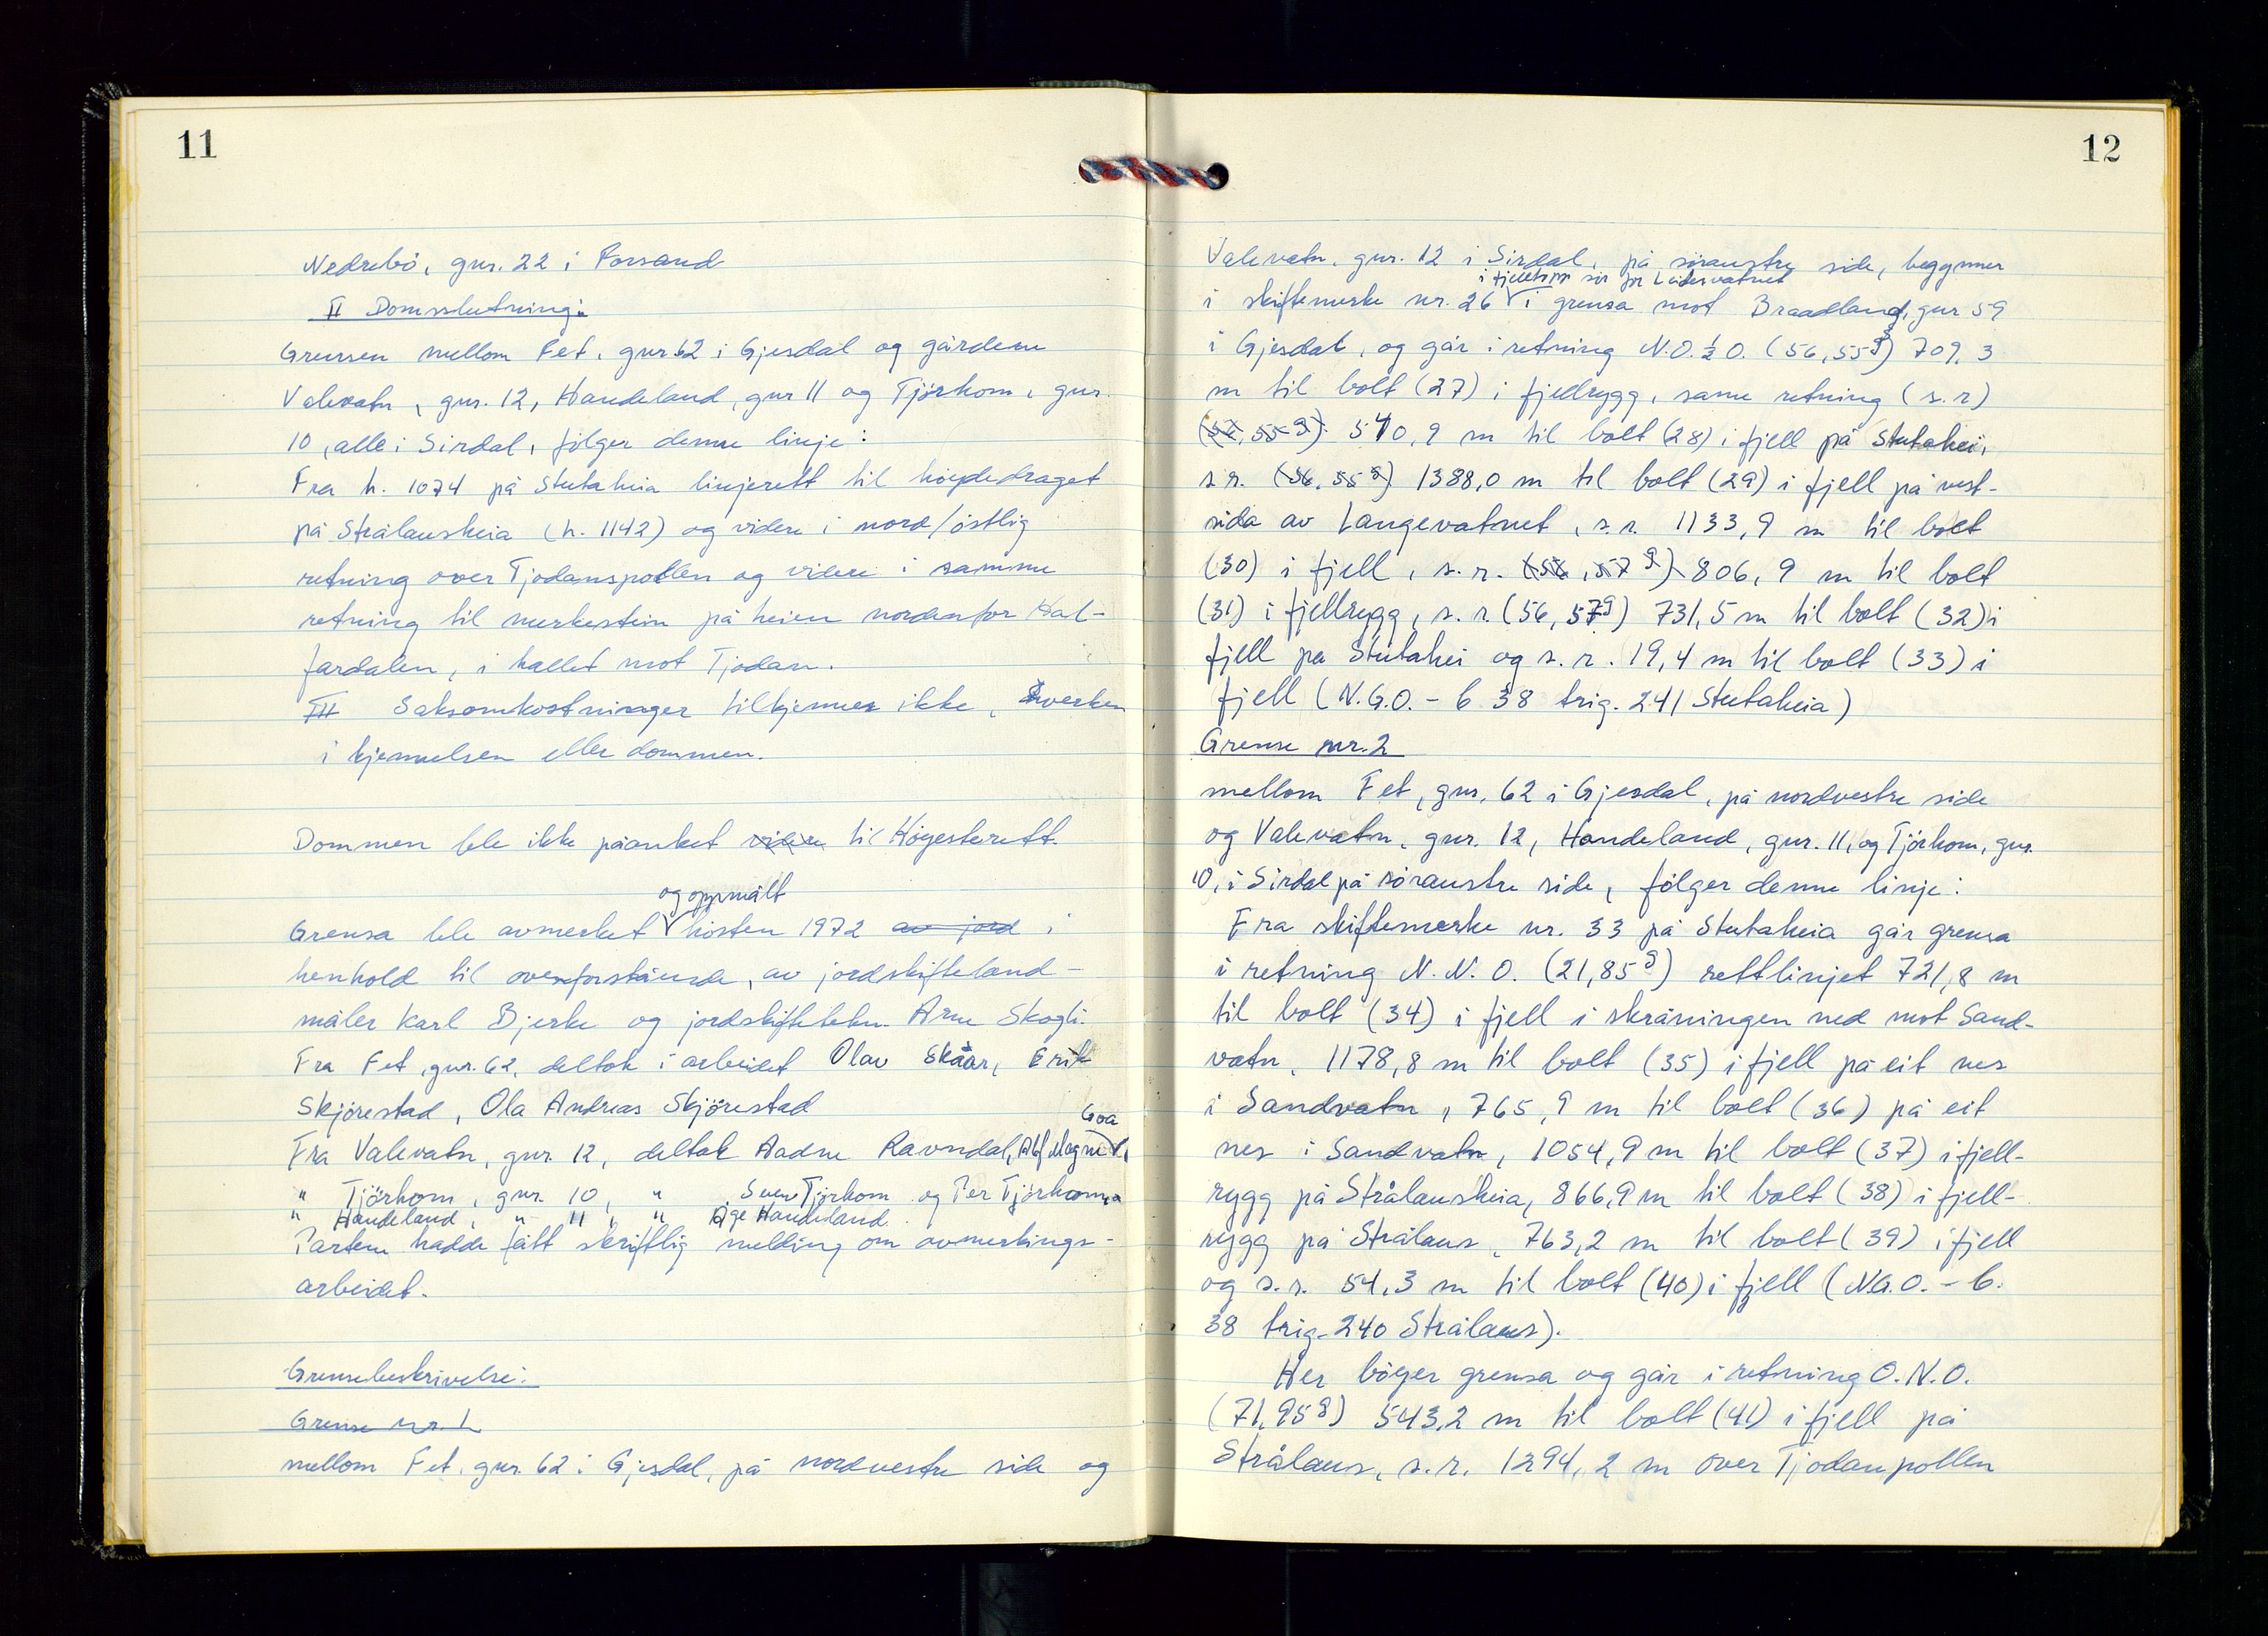 11
Nedrebö, gnr. 22 i Forsand
II Domsslutning:
Grensen mellom Fet, gnr 62 i Gjesdal og gårdene
Valevatn, gnr. 12, Handeland, gnr 11 og Tjörhom, gnr.
10, alle i Sirdal, fölger denne linje:
Fra h. 1074 på Stutaheia linjerett til höydedraget
på Strålausheia (h. 1142) og videre i nord/östlig
retning over Tjodanspollen og videre i samme
retning til merkestein på heien nordenfor Hal-
fardalen, i hallet mot Tjodan.
III Saksomkostninger tilkjennes ikke, hverken
i kjennelsen eller dommen.
Dommen ble ikke påanket videre til Högesterett.
og oppmålt
Grensa ble avmerket V hösten 1972 av jord i
henhold til ovenforstående, av jordskifteland-
måler Karl Bjerke og jordskiftetekn. Arne Skogli.
Fra Fet, gnr. 62, deltok i arbeidet Olav Skåar, Erik
Skjörestad, Ola Andreas Skjörestad
Goa
Fra Valevatn, gnr 12, deltok Aadne Ravndal, Alf Magne
" Tjörhom, gnr. 10, " Sven Tjörhom og Per Tjörhom
" Handeland, " 11, " Åge Handeland
Partene hadde fått skriftlig melding om avmerkings-
arbeidet.
Grensebeskrivelse:
Grense nr. 1
mellom Fet, gnr. 62 i Gjesdal, på nordvestre side og
12
Valevatn, gnr. 12 i Sirdal, på söraustre side, begynner
i fjelltopp sör for Leidesvatnet
i skiftemerke nr. 26 V i grensa mot Braadland, gnr 59
i Gjesdal, og går i retning N.O. ½ O. (56,55 g) 709,3
m til bolt (27) i fjellrygg, same retning (s.r)
(56,55 g) 540,9 m til bolt (28) i fjell på Stutahei,
s.r. (56,55 g) 1388,0 m til bolt (29) i fjell på vest-
sida av Langevatnet, s.r. 1133,9 m til bolt
(30) i fjell, s.r. (56,57 g) 806,9 m til bolt
(31) i fjellrygg, s.r. (56,57 g) 731,5 m til bolt (32) i
fjell på Stutahei og s.r. 19,4 m til bolt (33) i
fjell (N.G.O. - b 38 trig. 241 Stutaheia)
Grense nr. 2
mellom Fet, gnr. 62 i Gjesdal, på nordvestre side
og Valevatn, gnr. 12, Handeland, gnr. 11, og Tjörhom, gnr.
10, i Sirdal på söraustre side, fölger denne linje:
Fra skiftesmerke nr. 33 på Stutaheia går grensa
i retning N.N.O. (21,85 g) rettlinjet 721,8 m
til bolt (34) i fjell i skråningen ned mot Sand-
vatn, 1178,8 m til bolt (35) i fjell på eit nes
i Sandvatn, 765,9 m til bolt (36) på eit
nes i Sandvatn, 1054,9 m til bolt (37) i fjell-
rygg på Strålausheia, 866,9 m til bolt (38) i fjell-
rygg på Strålaus, 763,2 m til bolt (39) i fjell
og s.r. 54,3 m til bolt (40) i fjell (N.G.O. - b.
38 trig. 240 Strålaus).
Her böyer grensa og går i retning O.N.O.
(71,95 g) 543,2 m til bolt (41) i fjell på
Strålaus, s.r. 1294,2 m over Tjodanpollen